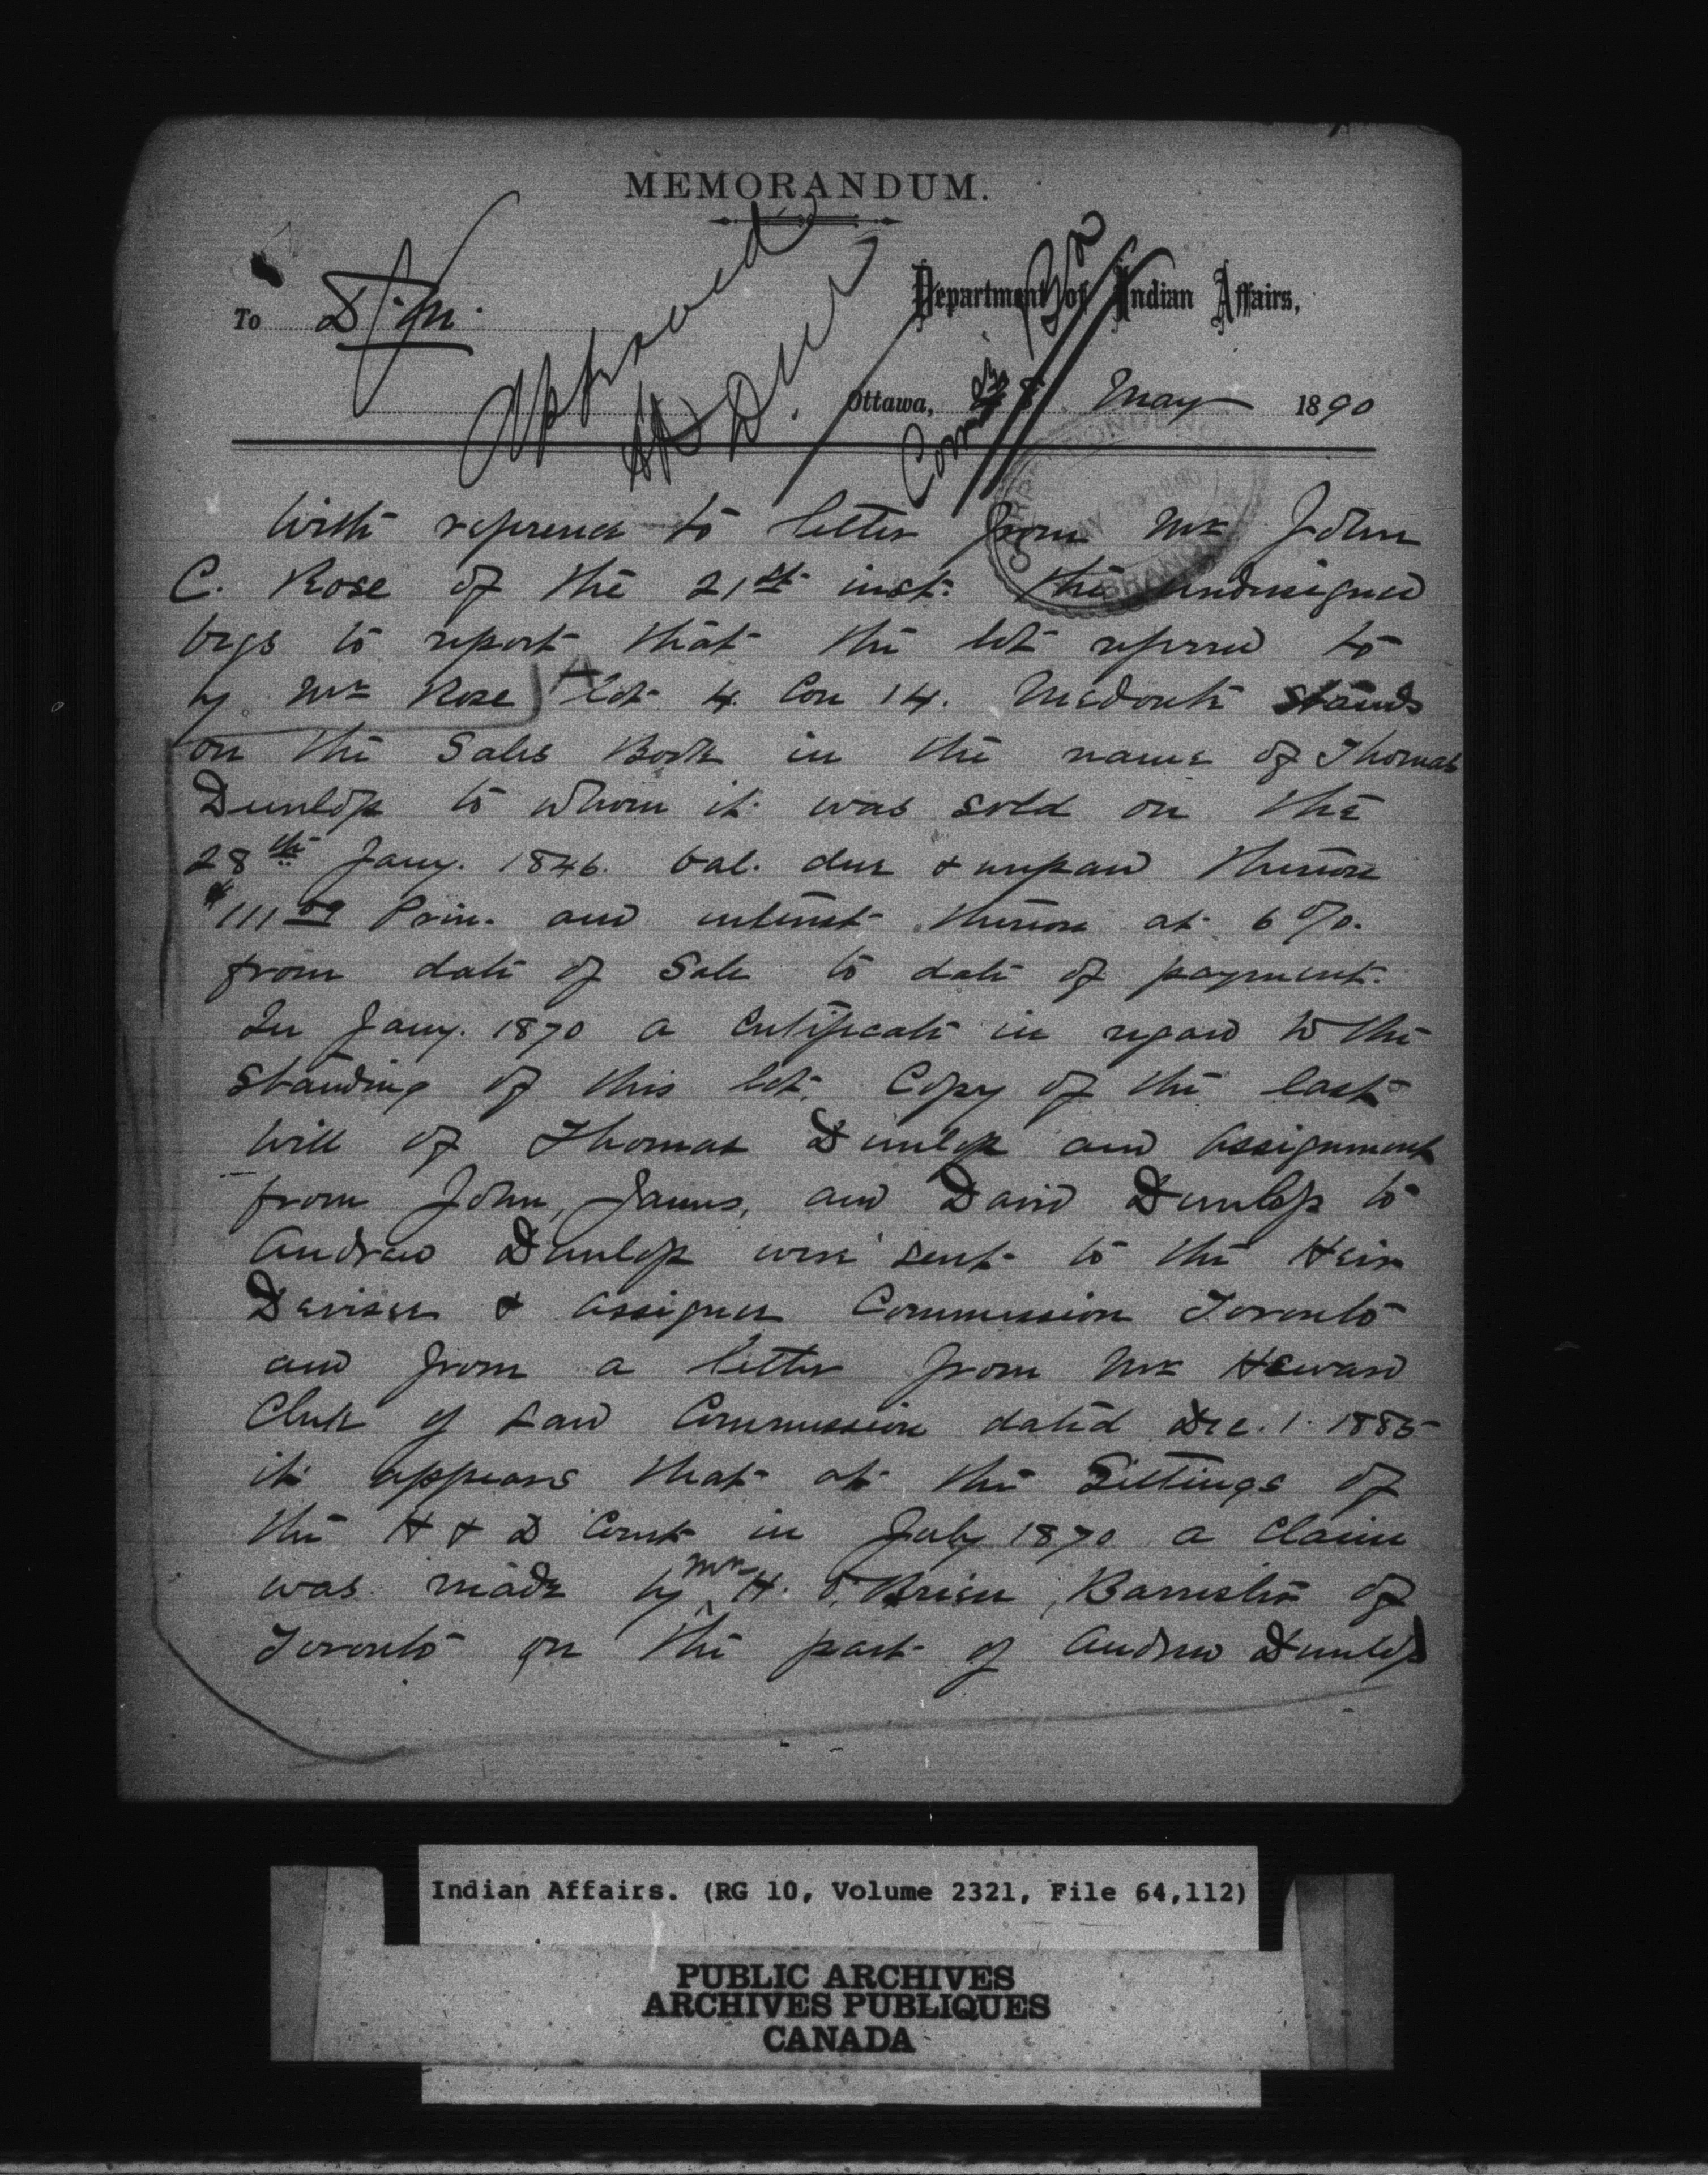 MEMORANDUM.
Department of Indian Affairs,
To D.S.G.
Approved
Ottawa, 28 May 1890
CORRESPONDENCE
MAY 29 1890
BRANCH
With reference to letter from Mr John
C. Rose of the 21st inst. the undersigned
begs to report that the lot referred to
by Mr Rose Lot 4. Con 14. Medonte stands
on the Sales Book in the name of Thomas
Dunlop to whom it was sold on the
28th Jany. 1846. bal. due & unpaid thereon
$111.09 Prin. and interest thereon at 6%.
from date of Sale to date of payment.
In Jany. 1870 a Certificate in regard to the
standing of this lot, Copy of the last
Will of Thomas Dunlop and Assignment
from John, James, and David Dunlop to
Andrew Dunlop were sent to the Heir
Devisee & Assignee Commission Toronto
and from a letter from Mr Heward
Clerk of said Commission dated Dec. 1. 1885
it appears that at the Sittings of
the H & D Court in July 1870 a Claim
was made by Mr H. O'Brien, Barrister of
Toronto on the part of Andrew Dunlop
Indian Affairs. (RG 10, Volume 2321, File 64,112)
PUBLIC ARCHIVES
ARCHIVES PUBLIQUES
CANADA